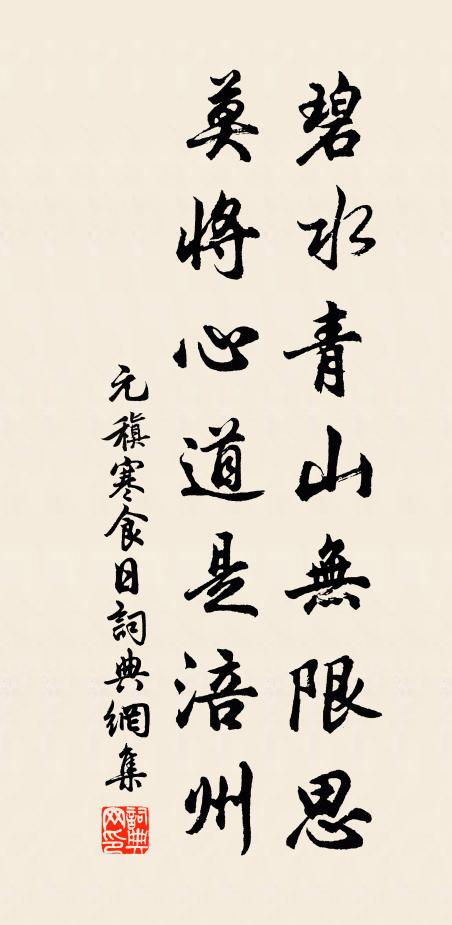 碧水青山無限思
莫將心道是涪州
元稹寒食日詞典網集
詞典網印